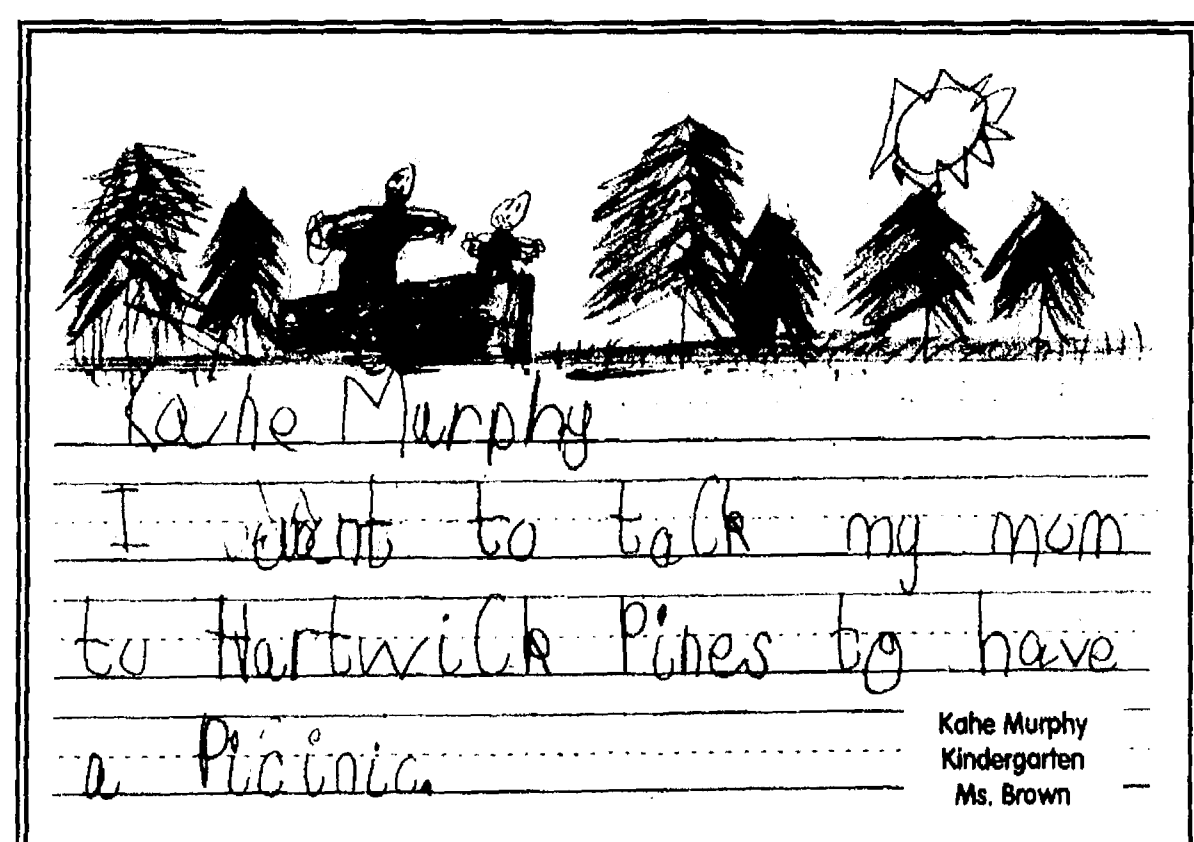 Kahe Murphy
I want to talk my mom
to Hartwick Pines to have
a Picinic.
Kahe Murphy
Kindergarten
Ms. Brown